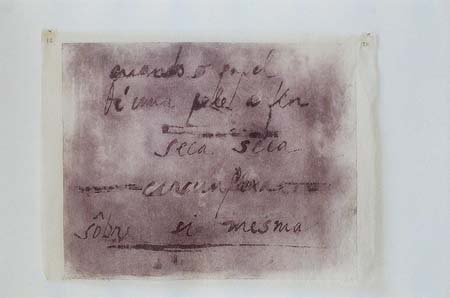 quando o papel
uma a flor
seca seca
circunflexa
sôbre si mesma